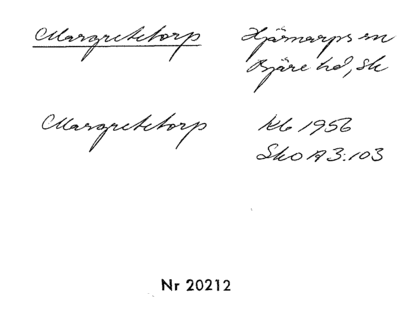 Margretetorp Hjärnarps sn
Bjäre hd, Sk
Margretetorp Kb 1956
Sko A3:103
Nr 20212